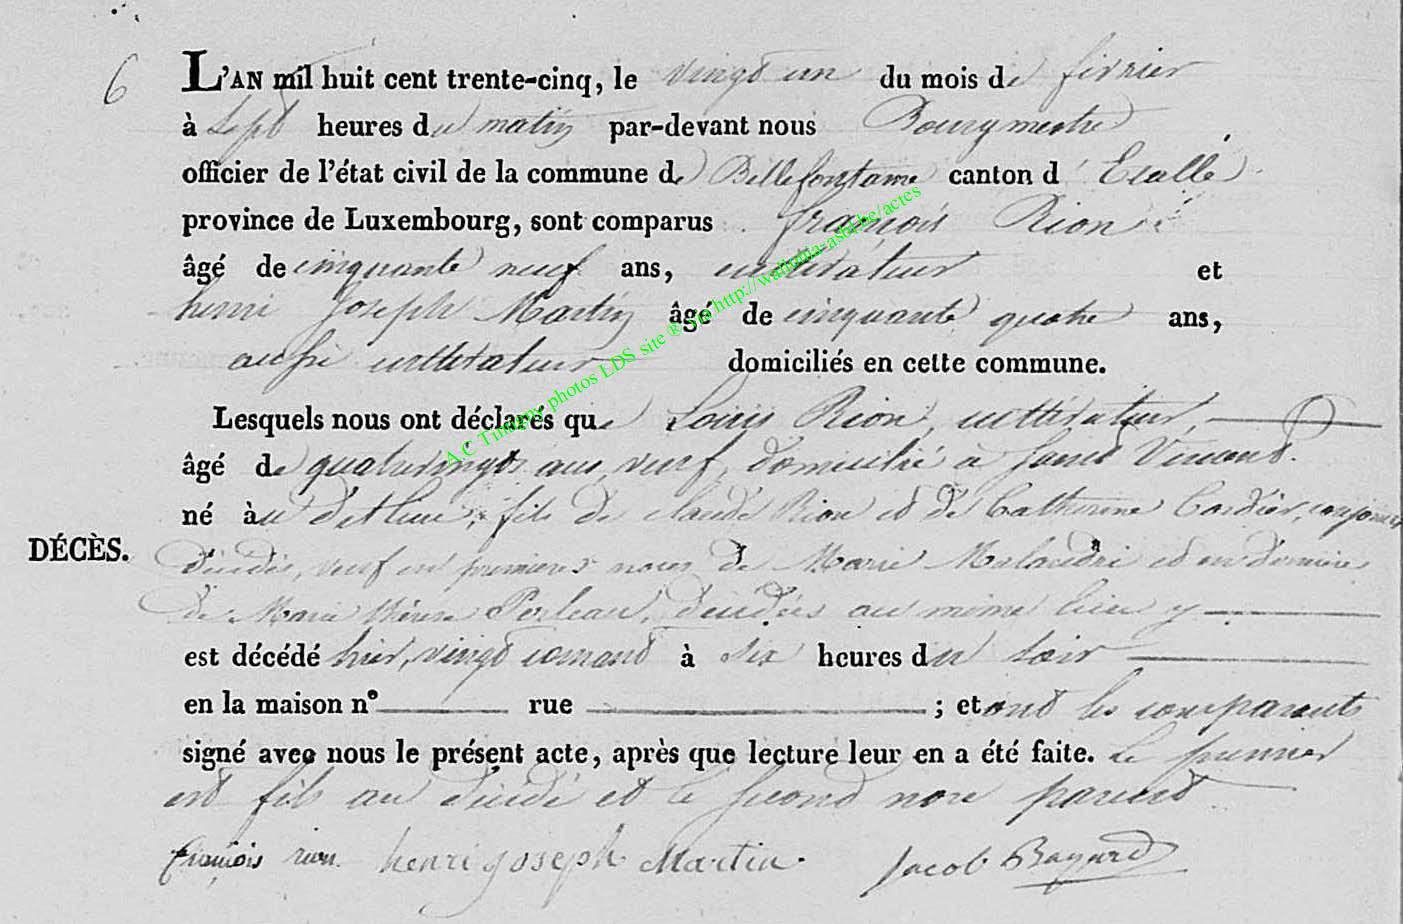 6
L'AN mil huit cent trente-cinq, le vingt un du mois de fivrier
à Sept heures du matin par-devant nous Bourgmestre
officier de l'état civil de la commune de Bellefontaine canton d' Etalle
province de Luxembourg, sont comparus françois Rion
âgé de cinquante neuf ans, cultivateur et
henri Joseph Martin âgé de cinquante quatre ans,
aussi cultivateur domiciliés en cette commune.
Lesquels nous ont déclarés que Louis Rion, cultivateur,
âgé de quatrevingt ans, veuf, domicilié à Saint Vincent.
né au dit lieu, fils de claude Rion et de Catherine Cordier, conjoints
DÉCÈS.
décédés, veuf en premieres noces de Marie et en derniere
de Marie thérese décédées au même lieu y
est décédé hier, vingt courant à six heures du soir
en la maison n° rue ; et ont les comparants
signé avec nous le présent acte, après que lecture leur en a été faite. Le premier
est fils au décédé et le second non parent
françois rion henri joseph Martin Jacob Bayard
A.C Tintigny photos LDS site ® via http://wallonia-asbl.be/actes